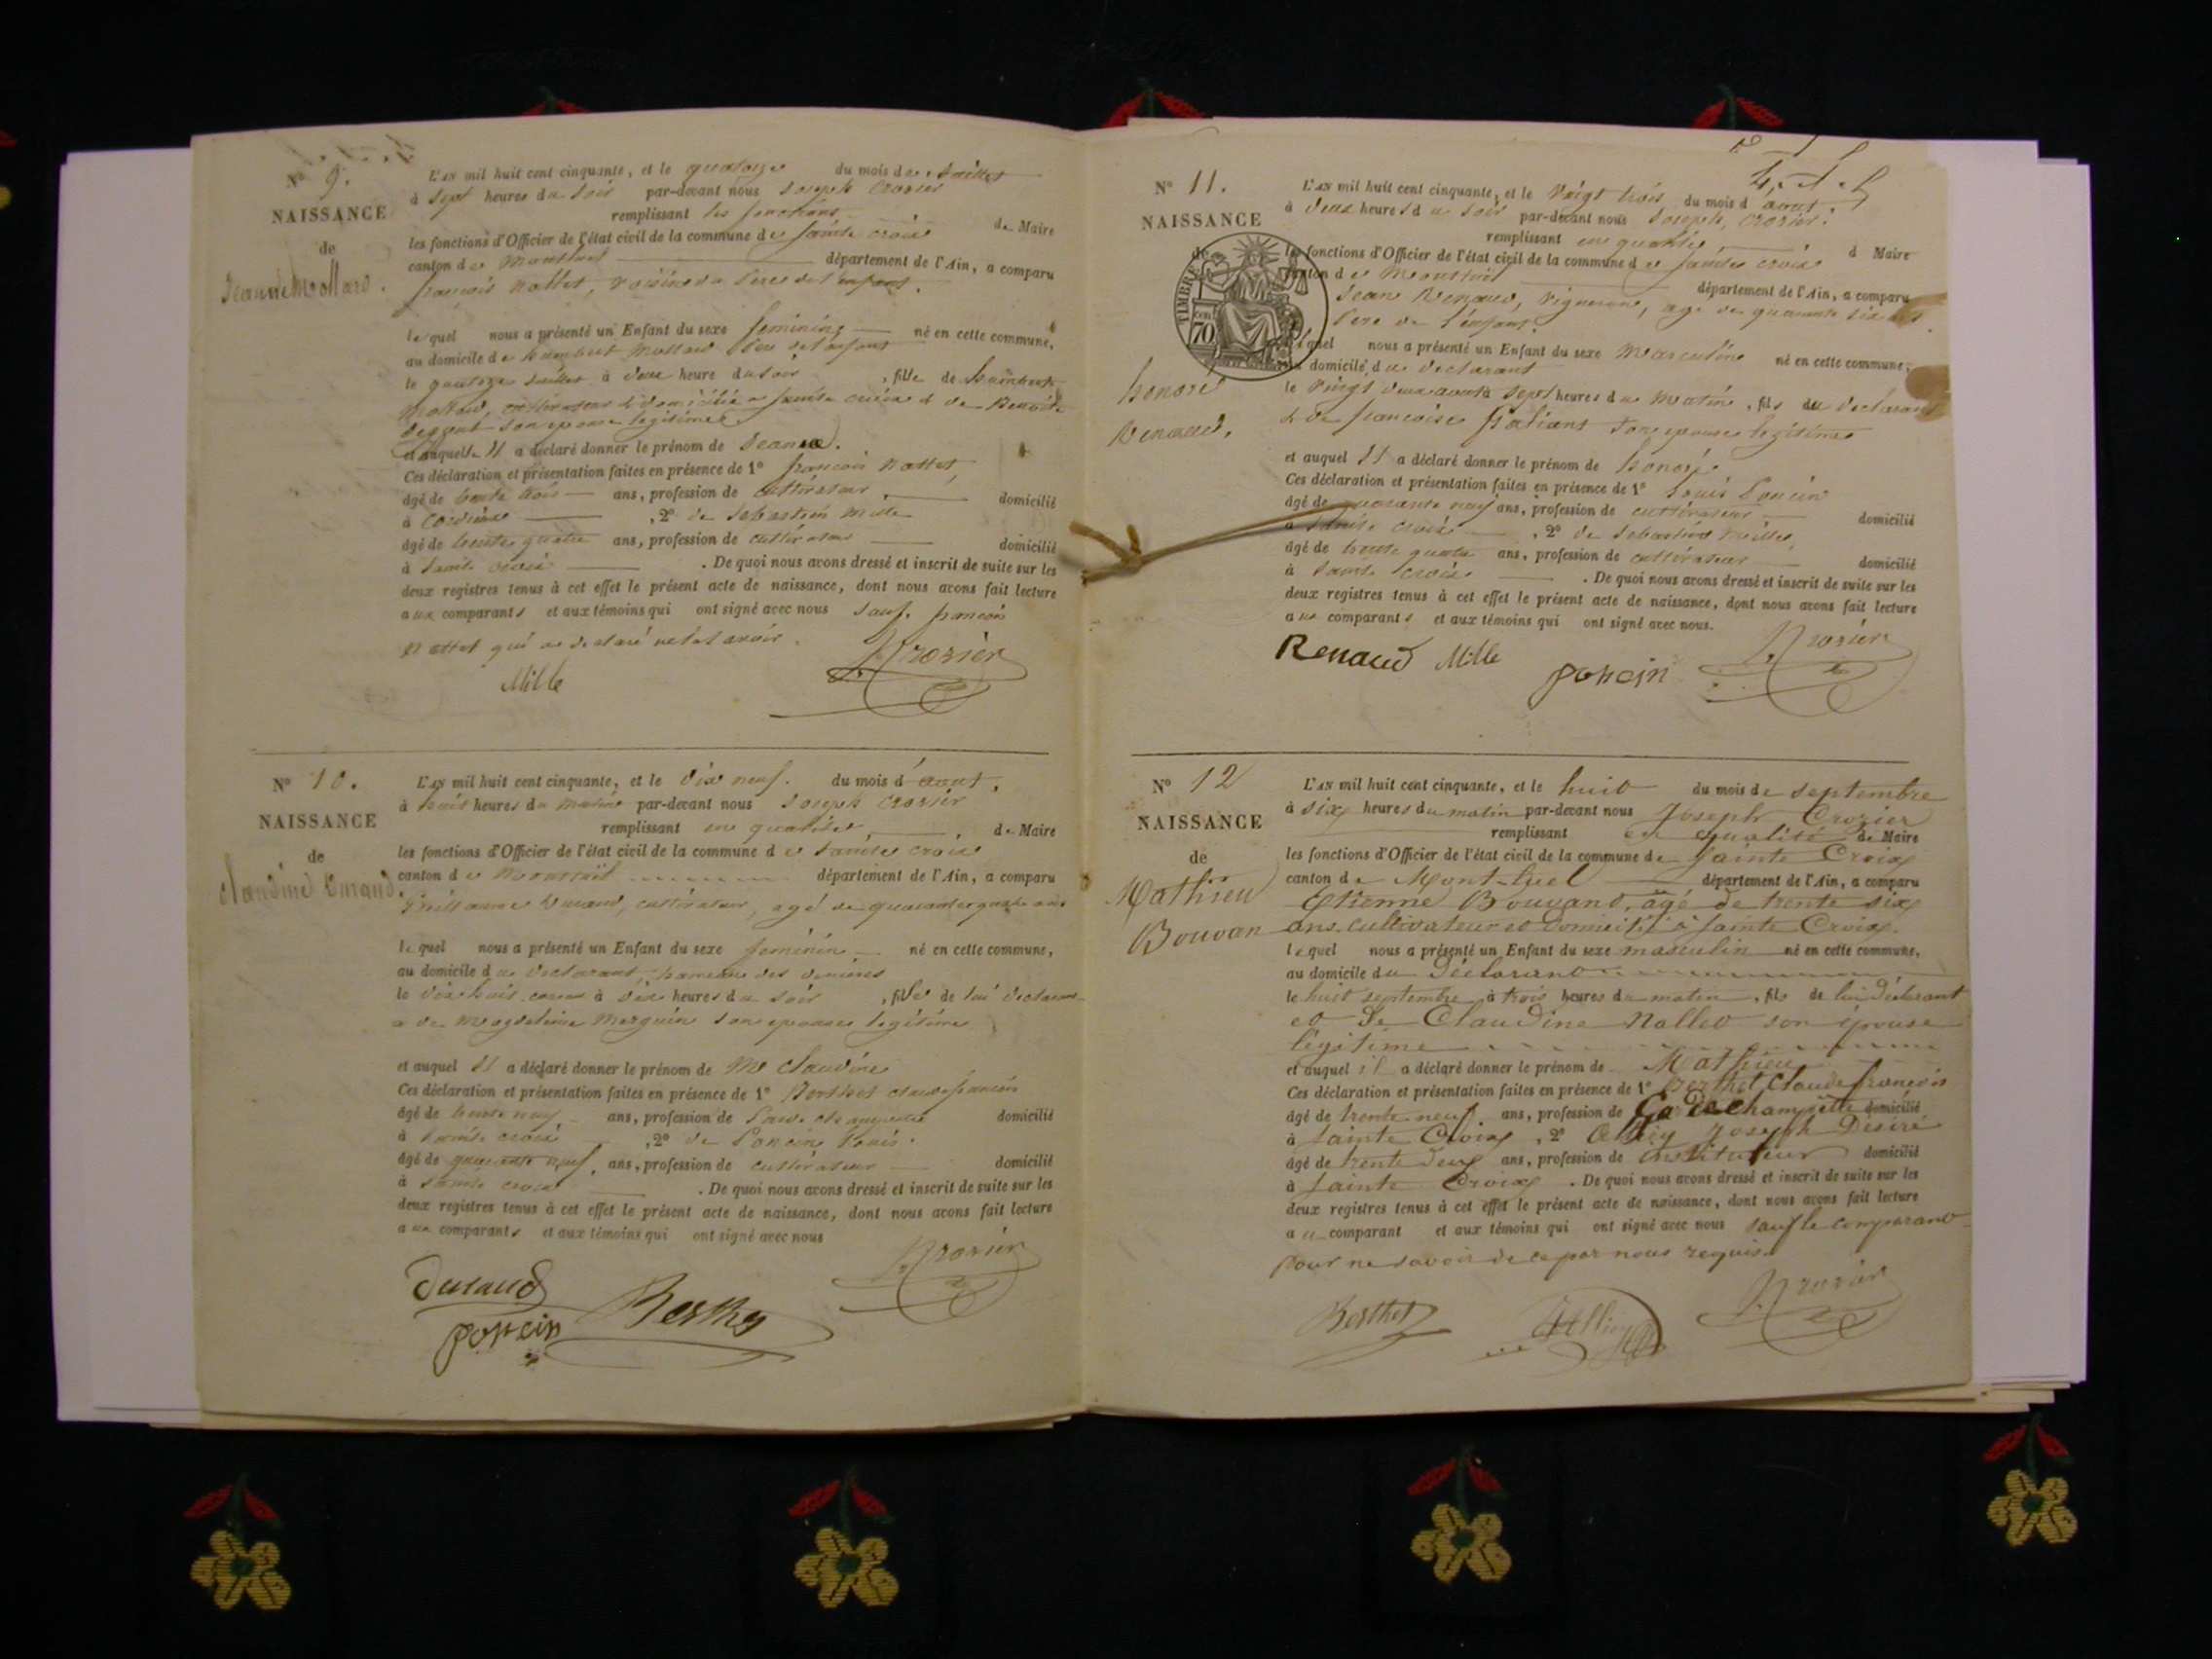 N° 9.
NAISSANCE
de
Jeanne Mollard.
L'AN mil huit cent cinquante, et le quatorze du mois de Juillet
à sept heures du soir par-devant nous Joseph Crozier
remplissant les fonctions de Maire
les fonctions d'Officier de l'état civil de la commune de Sainte croix
canton de Montluel département de l'Ain, a comparu
françois Nallet, voisin du Père de l'enfant.
lequel nous a présenté un Enfant du sexe fémining né en cette commune,
au domicile de humbert Mollard Père de l'enfant
le quatorze Juillet à deux heure du soir , fille de humbert
Mollard, cultivateur domicilié a Sainte croix et de Benoite
son epouse legitime
et auquelle il a déclaré donner le prénom de Jeanne.
Ces déclaration et présentation faites en présence de 1° françois Nallet,
âgé de trente trois ans, profession de cultivateur, domicilié
à Cordieux , 2° de Sebastien Mille
âgé de trente quatre ans, profession de cultivateur domicilié
à Sainte croix . De quoi nous avons dressé et inscrit de suite sur les
deux registres tenus à cet effet le présent acte de naissance, dont nous avons fait lecture
aux comparants et aux témoins qui ont signé avec nous Sauf. françois
Nallet qui a declaré ne le savoir.
Mille Crozier
N° 10.
NAISSANCE
de
claudine Durand.
L'AN mil huit cent cinquante, et le dix neuf. du mois d'aout,
à huit heures du matin par-devant nous Joseph Crozier
remplissant en qualité, de Maire
les fonctions d'Officier de l'état civil de la commune de Sainte croix
canton de Montluel département de l'Ain, a comparu
Guillaume Durand, cultivateur, agé de quarante quatre ans
lequel nous a présenté un Enfant du sexe féminin né en cette commune,
au domicile du declarant, hameau des
le dix huit courant à dix heures du soir , fille de lui declarant
et de Magdeleine Merguin son epouse legitime
et auquel il a déclaré donner le prénom de claudine
Ces déclaration et présentation faites en présence de 1° Berthet claude françois
âgé de trente neuf ans, profession de Garde champetre domicilié
à Sainte croix , 2° de Poncin Louis.
âgé de quarante neuf, ans, profession de cultivateur domicilié
à Sainte croix . De quoi nous avons dressé et inscrit de suite sur les
deux registres tenus à cet effet le présent acte de naissance, dont nous avons fait lecture
aux comparants et aux témoins qui ont signé avec nous
Crozier
Durand
poncin Berthet
N° 11.
NAISSANCE
de
TIMBRE
70
honoré
Renaud.
L'AN mil huit cent cinquante, et le vingt trois du mois d'aout
à deux heures du soir par-devant nous Joseph, Crozier.
remplissant en qualité d Maire
les fonctions d'Officier de l'état civil de la commune de Sainte croix
canton de Montluel département de l'Ain, a comparu
Jean Renaud, vigneron, agé de quarante six ans
Pere de l'enfant.
lequel nous a présenté un Enfant du sexe Masculin né en cette commune,
au domicile, du declarant
le vingt deux aout à sept heures du matin, fils du declarant
et de françoise son epouse legitime
et auquel il a déclaré donner le prénom de honoré
Ces déclaration et présentation faites en présence de 1° Louis Poncin
âgé de quarante neuf ans, profession de cultivateur domicilié
à Sainte croix , 2° de Sebastien Mille,
âgé de trente quatre ans, profession de cultivateur domicilié
à Sainte croix . De quoi nous avons dressé et inscrit de suite sur les
deux registres tenus à cet effet le présent acte de naissance, dont nous avons fait lecture
aux comparants et aux témoins qui ont signé avec nous.
Renaud Mille poncin Crozier
N° 12
NAISSANCE
de
Mathieu
Bouvan
L'AN mil huit cent cinquante, et le huit du mois de septembre
à six heures du matin par-devant nous Joseph Crozier
remplissant en qualité de Maire
les fonctions d'Officier de l'état civil de la commune de Sainte Croix
canton de Mont-luel département de l'Ain, a comparu
Etienne Bouvand, âgé de trente six
ans, cultivateur et domicilié à Sainte Croix.
lequel nous a présenté un Enfant du sexe masculin né en cette commune,
au domicile du déclarant
le huit septembre à trois heures du matin, fils de lui déclarant
et de Claudine Nallet son épouse
légitime
et auquel il a déclaré donner le prénom de Mathieu
Ces déclaration et présentation faites en présence de 1° Berthet Claude françois
âgé de trente neuf ans, profession de Garde champêtre domicilié
à Sainte Croix , 2° Joseph Désiré
âgé de trente deux ans, profession de instituteur domicilié
à Sainte Croix . De quoi nous avons dressé et inscrit de suite sur les
deux registres tenus à cet effet le présent acte de naissance, dont nous avons fait lecture
au comparant et aux témoins qui ont signé avec nous sauf le comparant
pour ne savoir de ce par nous requis.
Berthet Crozier